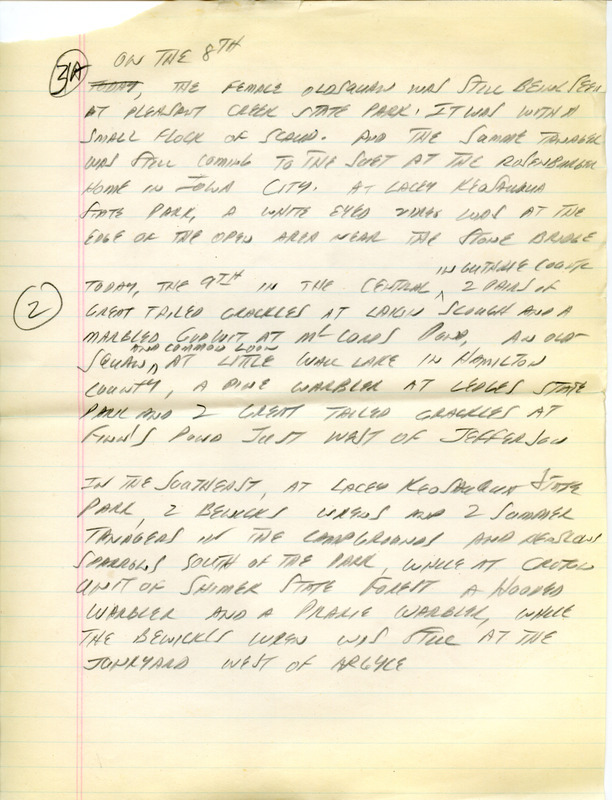 31A
ON THE 8TH
TODAY, THE FEMALE OLDSQUAW WAS STILL BEING SEEN
AT PLEASANT CREEK STATE PARK. IT WAS WITH A
SMALL FLOCK OF SCAUP. AND THE SUMMER TANAGER
WAS STILL COMING TO THE SUET AT THE ROSENBURGER
HOME IN IOWA CITY. AT LACEY KEOSAUQUA
STATE PARK, A WHITE EYED VIREO WAS AT THE
EDGE OF THE OPEN AREA NEAR THE STONE BRIDGE
IN GUTHRIE COUNTY
2
TODAY, THE 9TH IN THE CENTRAL, 2 PAIRS OF
GREAT TAILED GRACKLES AT LAKIN SLOUGH AND A
MARBLED GODWIT AT MCCORDS POND, AN OLD-
AND COMMON LOON
SQUAW, AT LITTLE WALL LAKE IN HAMILTON
COUNTY, A PINE WARBLER AT LEDGES STATE
PARK AND 2 GREAT TAILED GRACKLES AT
FINN'S POND JUST WEST OF JEFFERSON
IN THE SOUTHEAST, AT LACEY KEOSAUQUA STATE
PARK, 2 BEWICKS WRENS AND 2 SUMMER
TANAGERS IN THE CAMPGROUNDS AND HENSLOWS
SPARROWS SOUTH OF THE PARK, WHILE AT CROTON
UNIT OF SHIMEK STATE FOREST A HOODED
WARBLER AND A PRARIE WARBLER, WHILE
THE BEWICKS WREN WAS STILL AT THE
JUNKYARD WEST OF ARGYLE